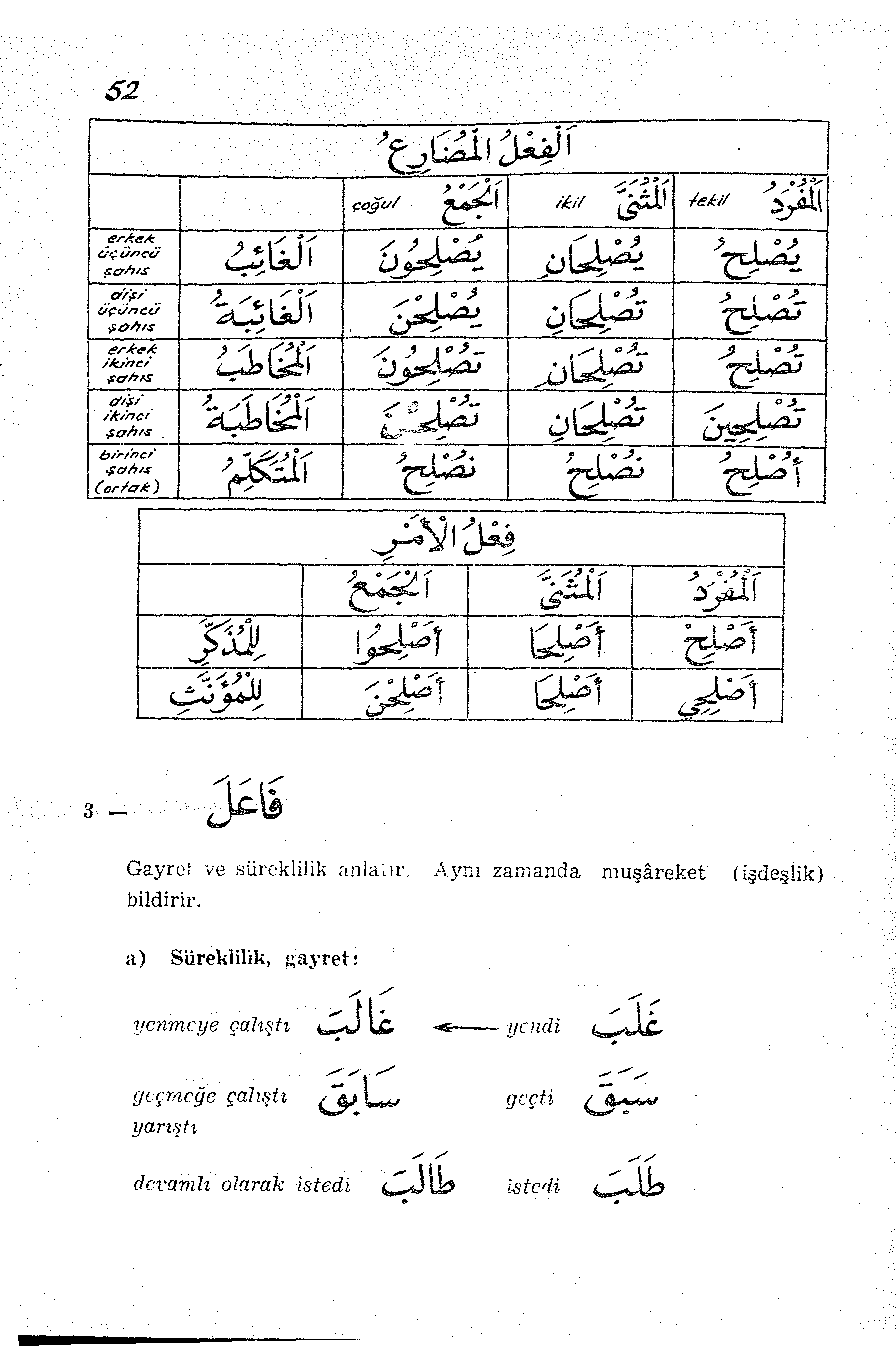 52
اَلْفِعْلُ الْمُضَارِعُ
çoğul اَلْجَمْعُ ikil اَلْمُثَنَّى tekil اَلْمُفْرَدُ
erkek üçüncü şahıs اَلْغَائِبُ يُصْلِحُونَ يُصْلِحَانِ يُصْلِحُ
dişi üçüncü şahıs اَلْغَائِبَةُ يُصْلِحْنَ تُصْلِحَانِ تُصْلِحُ
erkek ikinci şahıs اَلْمُخَاطَبُ تُصْلِحُونَ تُصْلِحَانِ تُصْلِحُ
dişi ikinci şahıs اَلْمُخَاطَبَةُ تُصْلِحْنَ تُصْلِحَانِ تُصْلِحِينَ
birinci şahıs (ortak) اَلْمُتَكَلِّمُ نُصْلِحُ نُصْلِحُ أُصْلِحُ
فِعْلُ الْأَمْرِ
اَلْجَمْعُ اَلْمُثَنَّى اَلْمُفْرَدُ
لِلْمُذَكَّرِ أَصْلِحُوا أَصْلِحَا أَصْلِحْ
لِلْمُؤَنَّثِ أَصْلِحْنَ أَصْلِحَا أَصْلِحِي
3 — فَاعَلَ
Gayret ve süreklilik anlatır. Aynı zamanda muşâreket (işdeşlik)
bildirir.
a) Süreklilik, gayret:
yenmeye çalıştı غَالَبَ ← yendi غَلَبَ
geçmeğe çalıştı سَابَقَ geçti سَبَقَ
yarıştı
devamlı olarak istedi طَالَبَ istedi طَلَبَ